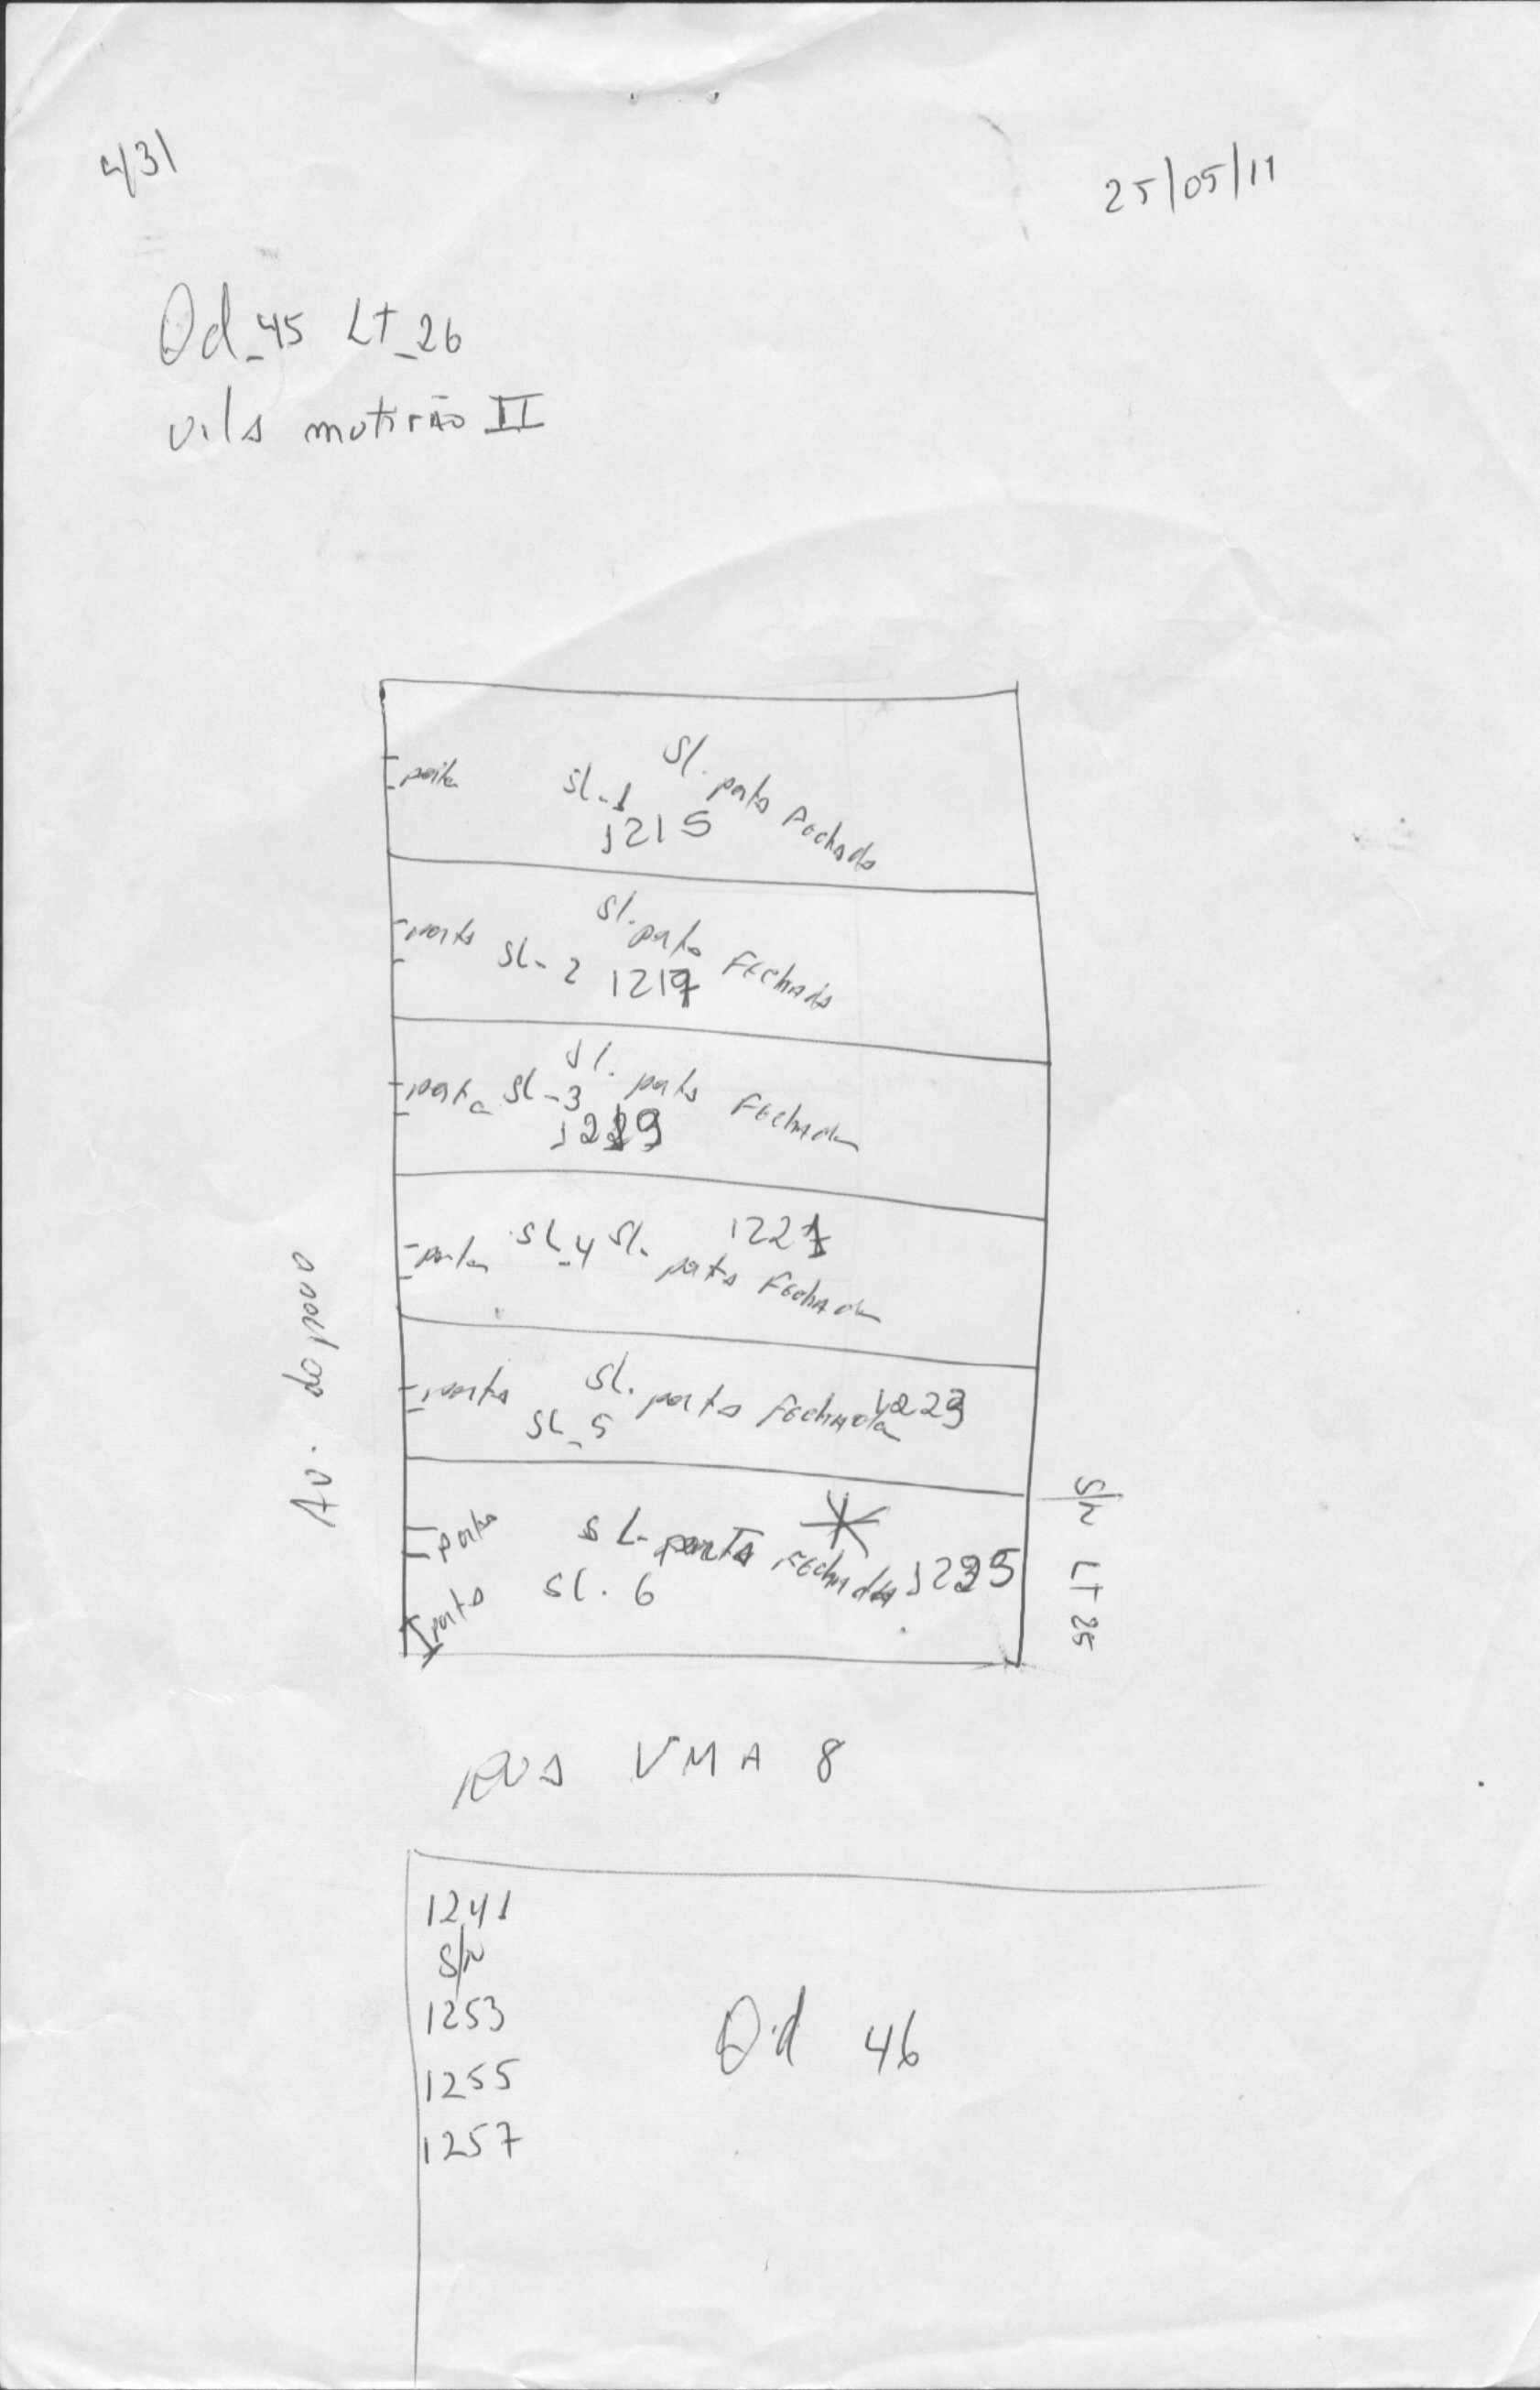 4/31
25/05/11
Qd_45 Lt_26
vila mutirão II
porta
sl-1
sl. porta fechada
1215
porta
sl-2
sl. porta fechada
1217
porta
sl-3
sl. porta fechada
1219
porta
sl-4
sl. porta fechada
1221
porta
sl-5
sl. porta fechada
1223
porta
sl. porta fechada 1225
porta
sl. 6
Av. do povo
S/N LT 25
RUA VMA 8
1241
S/N
1253
1255
1257
Qd 46